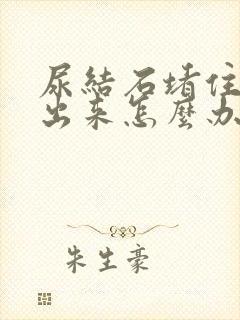 尿結石堵住
出来怎麼办
朱生豪